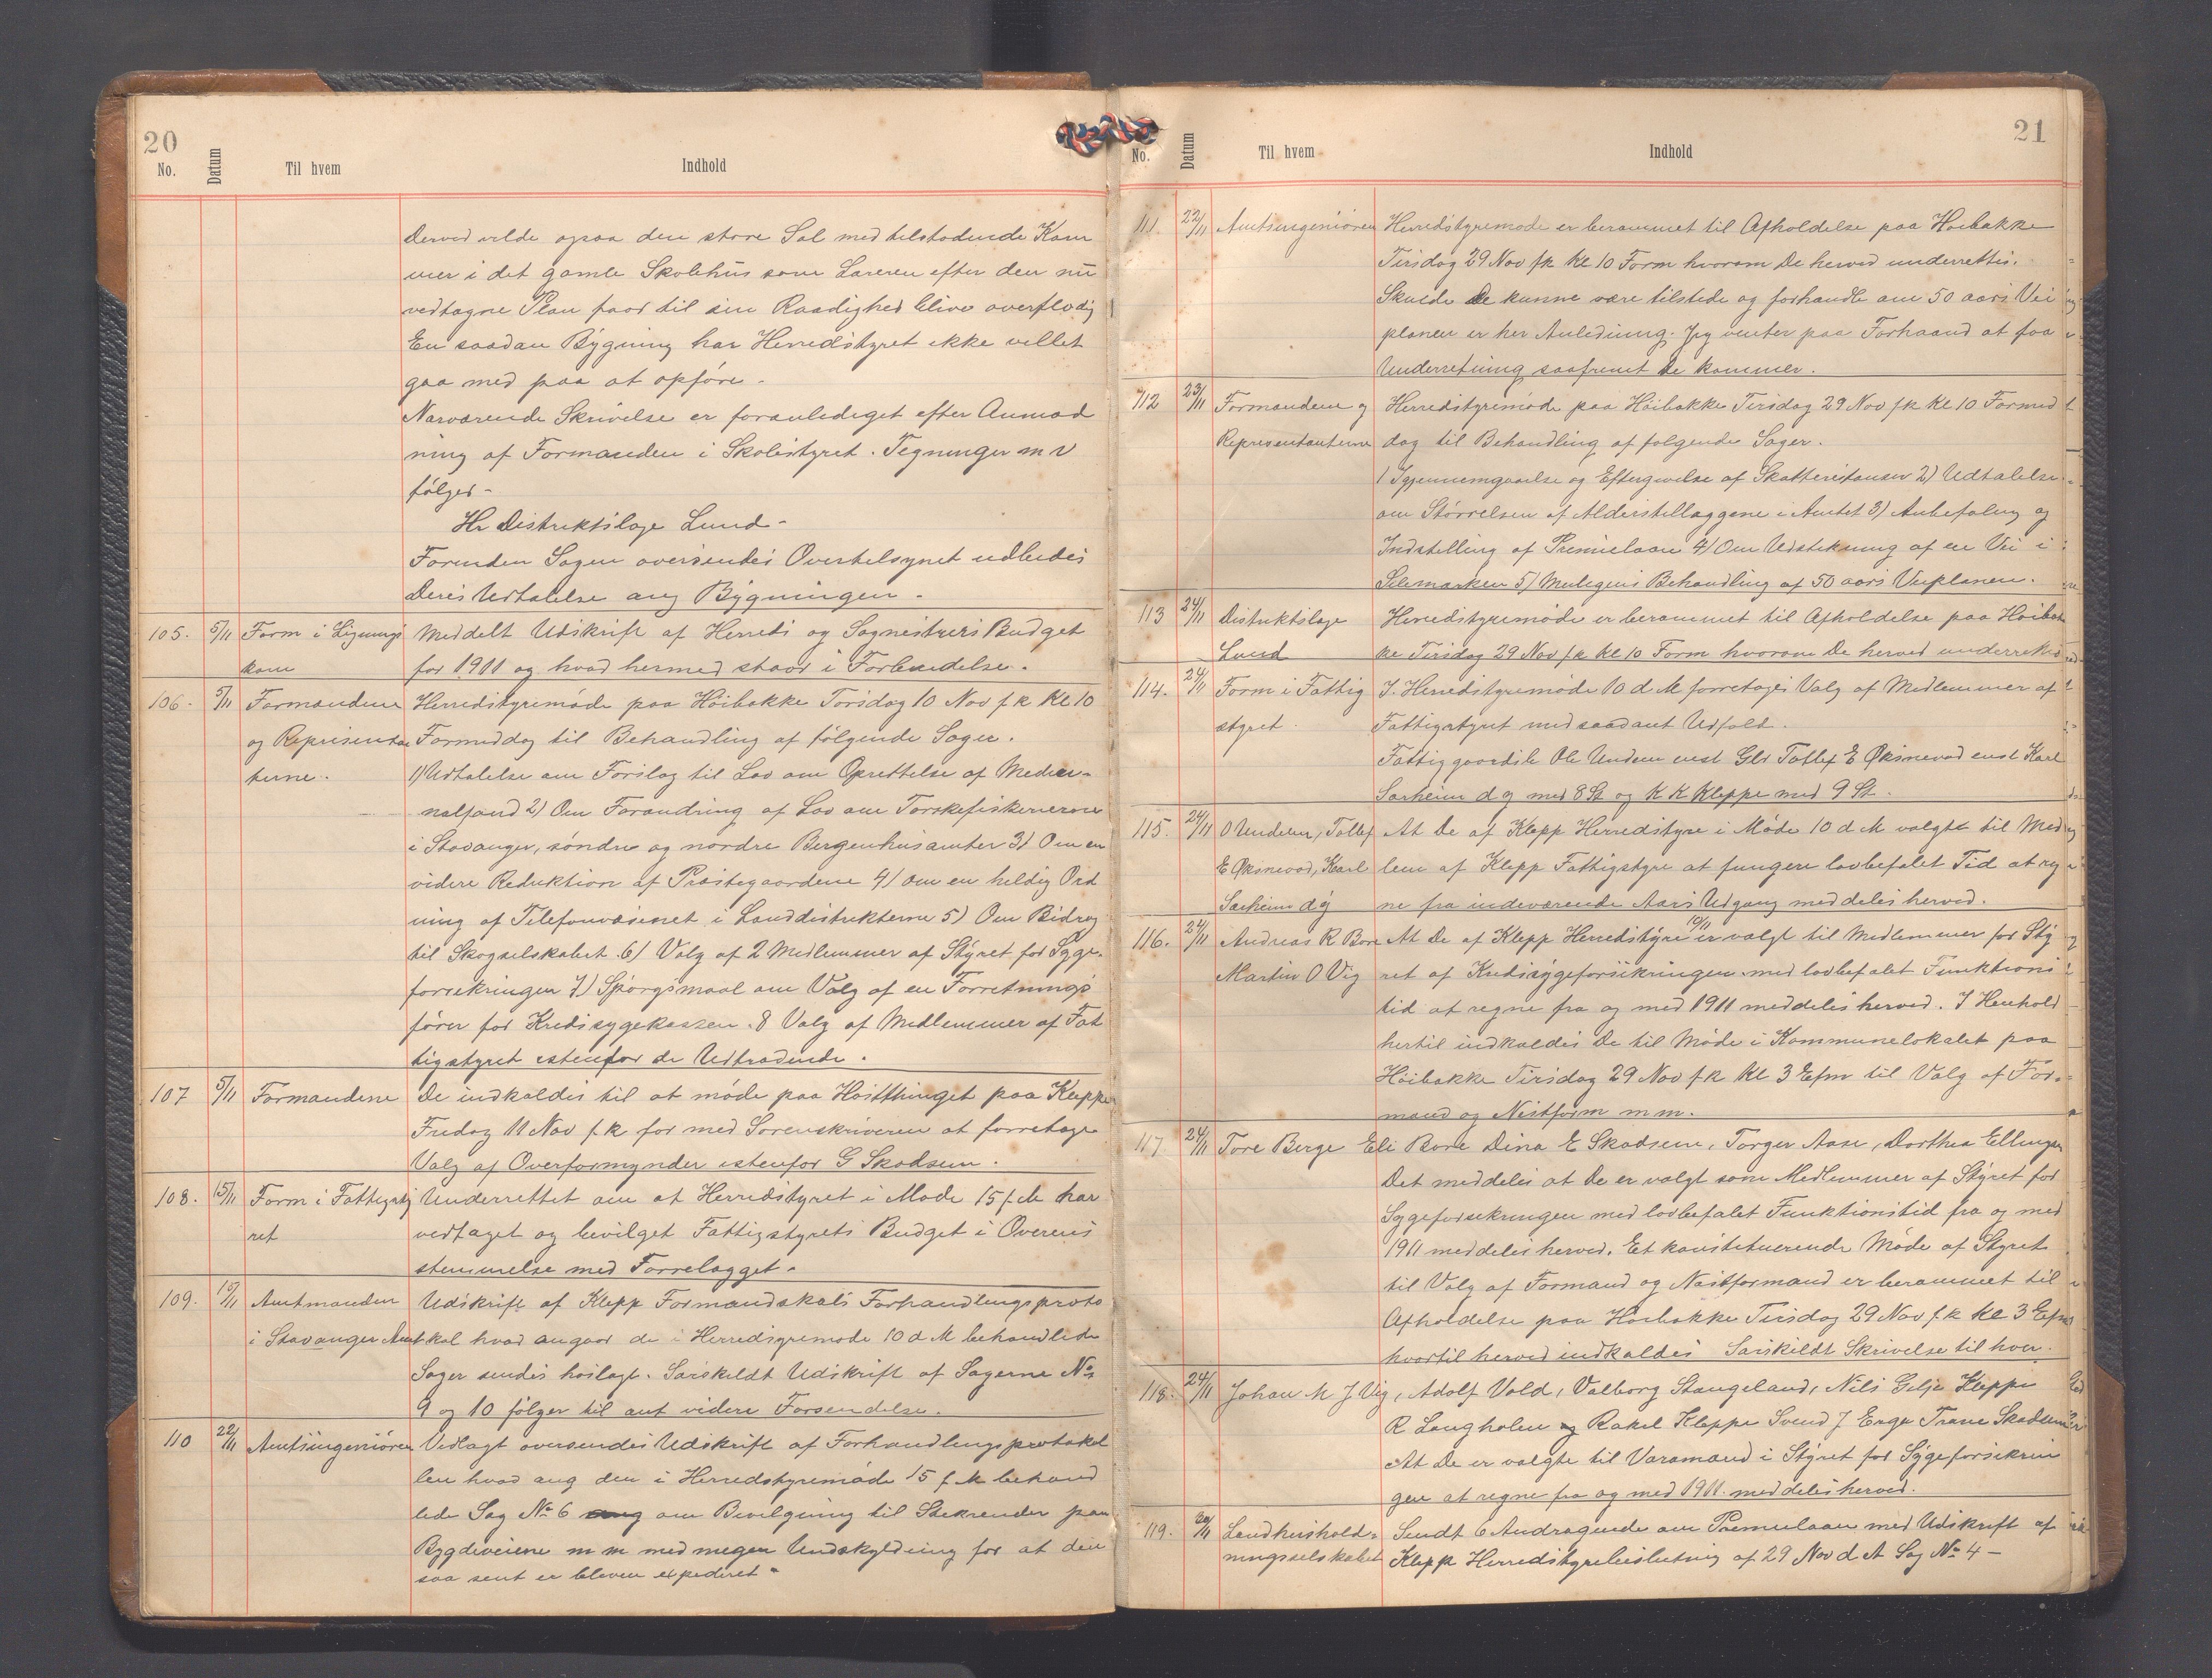 20
No. Datum Til hvem Indhold
Derved vilde ogsaa den store Sal med tilstødende Kam
mer i det gamle Skolehus som Læreren efter den nu
vedtagne Plan faar til sin Raadighed blive overflødig
En saadan Bygning har Herredstyret ikke villet
gaa med paa at opføre -
Nærværende Skrivelse er foranlediget efter Anmod
ning af Formanden i Skolestyret. Tegninger m v
følger -
Hr Distriktslæge Lund -
Forinden Sagen oversendes Overtilsynet udbedes
Deres Udtalelse ang Bygningen -
105. 5/11 Form i Lignings Meddelt Udskrift af Herreds og Sognestyrets Budget
kom for 1911 og hvad hermed staar i Forbindelse.
106 - 5/11 Formændene Herredstyremøde paa Höibakke Torsdag 10 Nov f k Kl 10
og Represænta Formiddag til Behandling af følgende Sager.
terne. 1) Udtalelse om Forslag til Lov om Oprettelse af
nalfond 2) Om Forandring af Lov om Torskefiskerierne
i Stavanger, søndre og nordre Bergenhus amter 3) Om en
videre Reduktion af Præstegaardene 4) Om en heldig Ord
ning af Telefonvæsenet i Landdistrikterne 5) Om Bidrag
til Skogselskabet 6) Valg af 2 Medlemmer af Styret for Syge-
forsikringen 7) Spørgsmaal om Valg af en Forretnings
fører for Kredssygekassen. 8 Valg af Medlemmer af Fat
tigstyret istenfor de Udtrædende.
107 5/11 Formændene De indkaldes til at møde paa Høstthinget paa Kleppe
Fredag 11 Nov f. k for med Sorenskriveren at foretage
Valg af Overformynder istenfor G Skadsem.
108. 15/11 Form i Fattigsty Underrettet om at Herredstyret i Møde 15 f. M har
ret vedtaget og bevilget Fattigstyrets Budget i Overens
stemmelse med Forrelægget.
109. 15/11 Amtmanden Udskrift af Klepp Formandskabs Forhandlingsproto
i Stavanger Amt kol hvad angaar de i Herredsyremøde 10 d M behandlede
Sager sendes hoslagt. Særskildt Udskrift af Sagerne No
9 og 10 følger til evt videre Forsendelse.
110 22/11 Amtsingeniøren Vedlagt oversendes Udskrift af Forhandlingsprotokol
len hvad ang den i Herredstyremøde 15 f. M behand
lede Sag No 6 ang om Bevilgning til Stikrender paa
Bygdeveiene m m med megen Undskyldning for at den
saa sent er bleven expederet.
21
No. Datum Til hvem Indhold
111. 22/11 Amtsingeniøren Herredstyremøde er berammet til Afholdelse paa Høibakke
Tirsdag 29 Nov f k Kl 10 Form hvorom De herved underrettes.
Skulde De kunne være tilstede og forhandle om 50 aars Vei
planen er her Anledning. Jeg venter paa Forhaand at faa
Underretning saafremt De kommer.
112 23/11 Formændene og Herredstyremøde paa Höibakke Tirsdag 29 Nov f k Kl 10 Formid
Representanterne dag til Behandling af følgende Sager.
1 Igjennemgaaelse og Eftergivelse af Skatterestanser 2) Udtalelse
om Størrelsen af Alderstillæggene i Amtet 3) Anbefaling og
Indstilling af Premielaan 4) Om Udstikning af en Vei i
Selemarken 5) Muligens Behandling af 50 aars Veiplanen.
113 24/11 Distriktslæge Herredstyremøde er berammet til Afholdelse paa Höibak
Lund ke Tirsdag 29 Nov f. k Kl 10 Form hvorom De herved underrettes
114. 24/11 Form i Fattig I Herredstyremøde 10 d M forretoges Valg af Medlemmer af
styret. Fattigstyret med saadant Udfald.
Ole Undem enst Gbr Tollef E Øksnevad enst Karl
Sørheim d y med 8 St og K K Kleppe med 9 St.
115. 24/11 O Undem, Tollef At De af Klepp Herredstyre i Møde 10 d M valgte til Med
E Øksnevad, Karl lem af Klepp Fattigstyre at fungere lovbefalet Tid at reg
Sørheim d y ne fra indeværende Aars Udgang meddeles herved.
116. 24/11 Andreas R Bore At De af Klepp Herredstyre 10/11 er valgt til Medlemmer for Sty
Martin O Vig ret af Kredssygeforsikringen med lovbefalet Funktions
tid at regne fra og med 1911 meddeles herved. I Henhold
hertil indkaldes De til Møde i Kommunelokalet paa
Höibakke Tirsdag 29 Nov f k Kl 3 Efm til Valg af For-
mand og Næstform m m.
117. 24/11 Tore Berge Eli Bore Dina E Skadsem, Torger Aase, Dorthea Ellingsen
Det meddeles at De er valgt som Medlemmer af Styret for
Sygeforsikringen med lovbefalet Funktionstid fra og med
1911 meddeles herved. Et konstituerende Møde af Styret
til Valg af Formand og Næstformand er berammet til
Afholdelse paa Høibakke Tirsdag 29 Nov f. k Kl 3 Efm
hvortil herved indkaldes Særskildt Skrivelse til hver.
118. 24/11 Johan M J Vig, Adolf Vold, Valborg Stangeland, Nils Gilje Kleppe
R Langholen og Rakel Kleppe Svend J Erga Trane Skadsem
At De er valgte til Varamænd i Styret for Sygeforsikrin
gen at regne fra og med 1911. meddeles herved.
119. Landhushold- Sendt 6 Andragende om Premielaan med Udskrift af
ningsselskabet Klepp Herredstyrebeslutning af 29 Nov d A Sag No 4 -